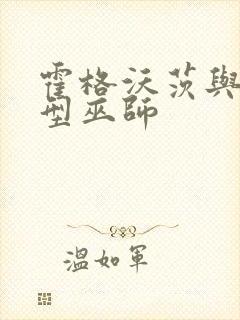 霍格沃茨與
型巫師
溫如軍